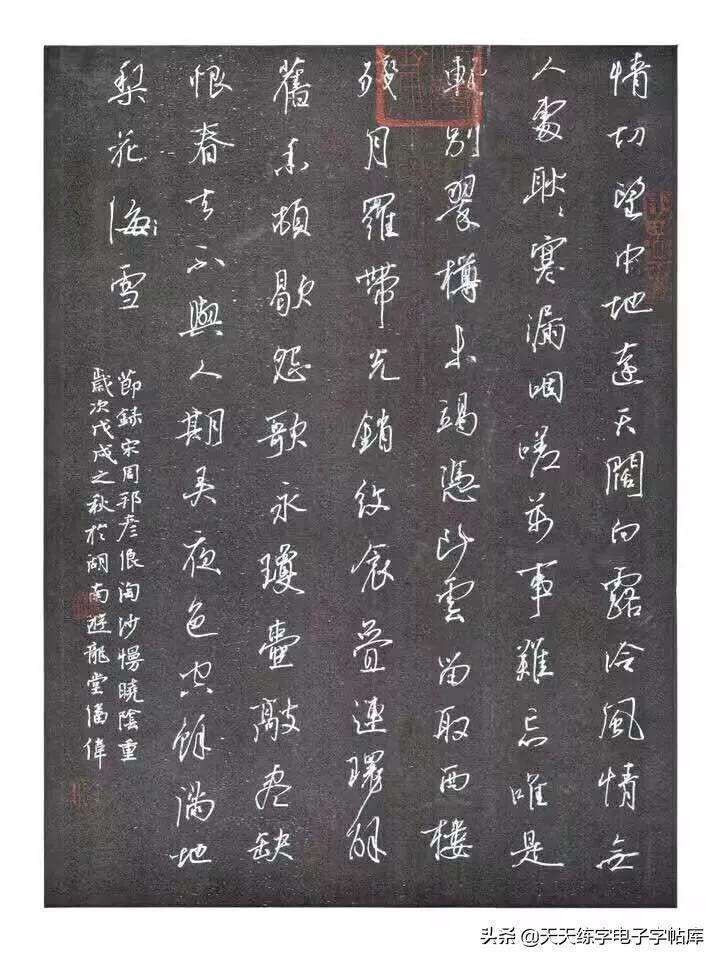 情切望中地遠天闊向露冷風情無
人處耿々寒漏咽嗟萬事難忘唯是
輕别翠樽未竭憑断雲留取西樓
殘月羅帶光銷紋衾疊連環解
舊香頓歇怨歌永瓊壺敲盡缺
恨春去不與人期弄夜色空餘滿地
梨花海雪
節録宋周邦彦浪淘沙慢曉陰重
歲次戊戌之秋於湖南遊龍堂潘偉
头条 @天天练字电子字帖库